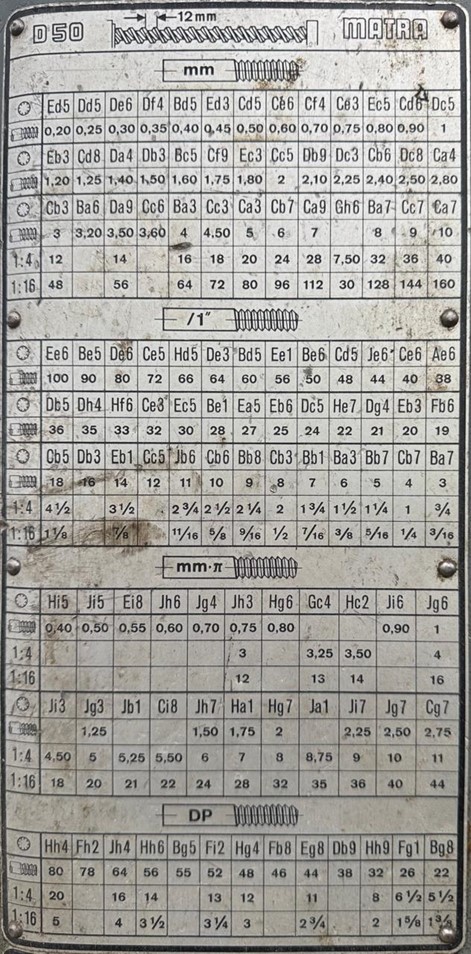 D50 12mm MATRA
mm
Ed5 Dd5 De6 Df4 Bd5 Ed3 Cd5 Ce6 Cf4 Ce3 Ec5 Cd6 Dc5
0,20 0,25 0,30 0,35 0,40 0,45 0,50 0,60 0,70 0,75 0,80 0,90 1
Eb3 Cd8 Da4 Db3 Bc5 Cf9 Ec3 Cc5 Db9 Dc3 Cb6 Dc8 Ca4
1,20 1,25 1,40 1,50 1,60 1,75 1,80 2 2,10 2,25 2,40 2,50 2,80
Cb3 Ba6 Da9 Cc6 Ba3 Cc3 Ca3 Cb7 Ca9 Gh6 Ba7 Cc7 Ca7
3 3,20 3,50 3,60 4 4,50 5 6 7 8 9 10
1:4 12 14 16 18 20 24 28 7,50 32 36 40
1:16 48 56 64 72 80 96 112 30 128 144 160
/1"
Ee6 Be5 De6 Ce5 Hd5 De3 Bd5 Ee1 Be6 Cd5 Je6 Ce6 Ae6
100 90 80 72 66 64 60 56 50 48 44 40 38
Db5 Dh4 Hf6 Ce3 Ec5 Be1 Ea5 Eb6 Dc5 He7 Dg4 Eb3 Fb6
36 35 33 32 30 28 27 25 24 22 21 20 19
Cb5 Db3 Eb1 Cc5 Jb6 Cb6 Bb8 Cb3 Bb1 Ba3 Bb7 Cb7 Ba7
18 16 14 12 11 10 9 8 7 6 5 4 3
1:4 4½ 3½ 2¾ 2½ 2¼ 2 1¾ 1½ 1¼ 1 ¾
1:16 1⅛ ⅞ 11/16 ⅝ 9/16 ½ 7/16 ⅜ 5/16 ¼ 3/16
mm·π
Hi5 Ji5 Ei8 Jh6 Jg4 Jh3 Hg6 Gc4 Hc2 Ji6 Jg6
0,40 0,50 0,55 0,60 0,70 0,75 0,80 0,90 1
1:4 3 3,25 3,50 4
1:16 12 13 14 16
Ji3 Jg3 Jb1 Ci8 Jh7 Ha1 Hg7 Ja1 Ji7 Jg7 Cg7
1,25 1,50 1,75 2 2,25 2,50 2,75
1:4 4,50 5 5,25 5,50 6 7 8 8,75 9 10 11
1:16 18 20 21 22 24 28 32 35 36 40 44
DP
Hh4 Fh2 Jh4 Hh6 Bg5 Fi2 Hg4 Fb8 Eg8 Db9 Hh9 Fg1 Bg8
80 78 64 56 55 52 48 46 44 38 32 26 22
1:4 20 16 14 13 12 11 8 6½ 5½
1:16 5 4 3½ 3¼ 3 2¾ 2 1⅝ 1⅜